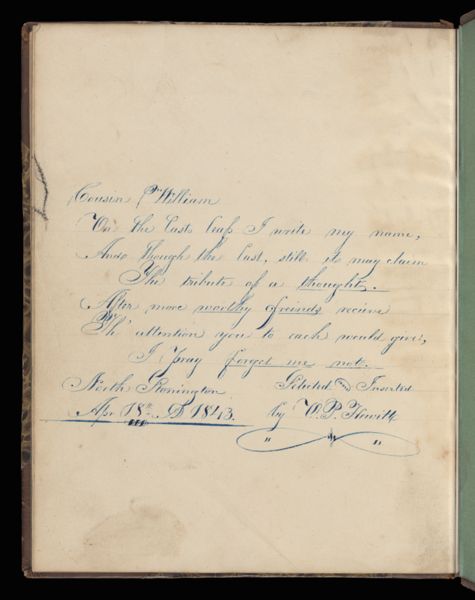 Cousin Wm William
On the last leaf I write my name,
And though the last, still it may claim
The tribute of a thought.
After more worthy friends recieve
Th' attention you to each would give,
I pray forget me not.
North Stonington Selected and Inserted
Apr 18th 1843. by W. P. Hewitt